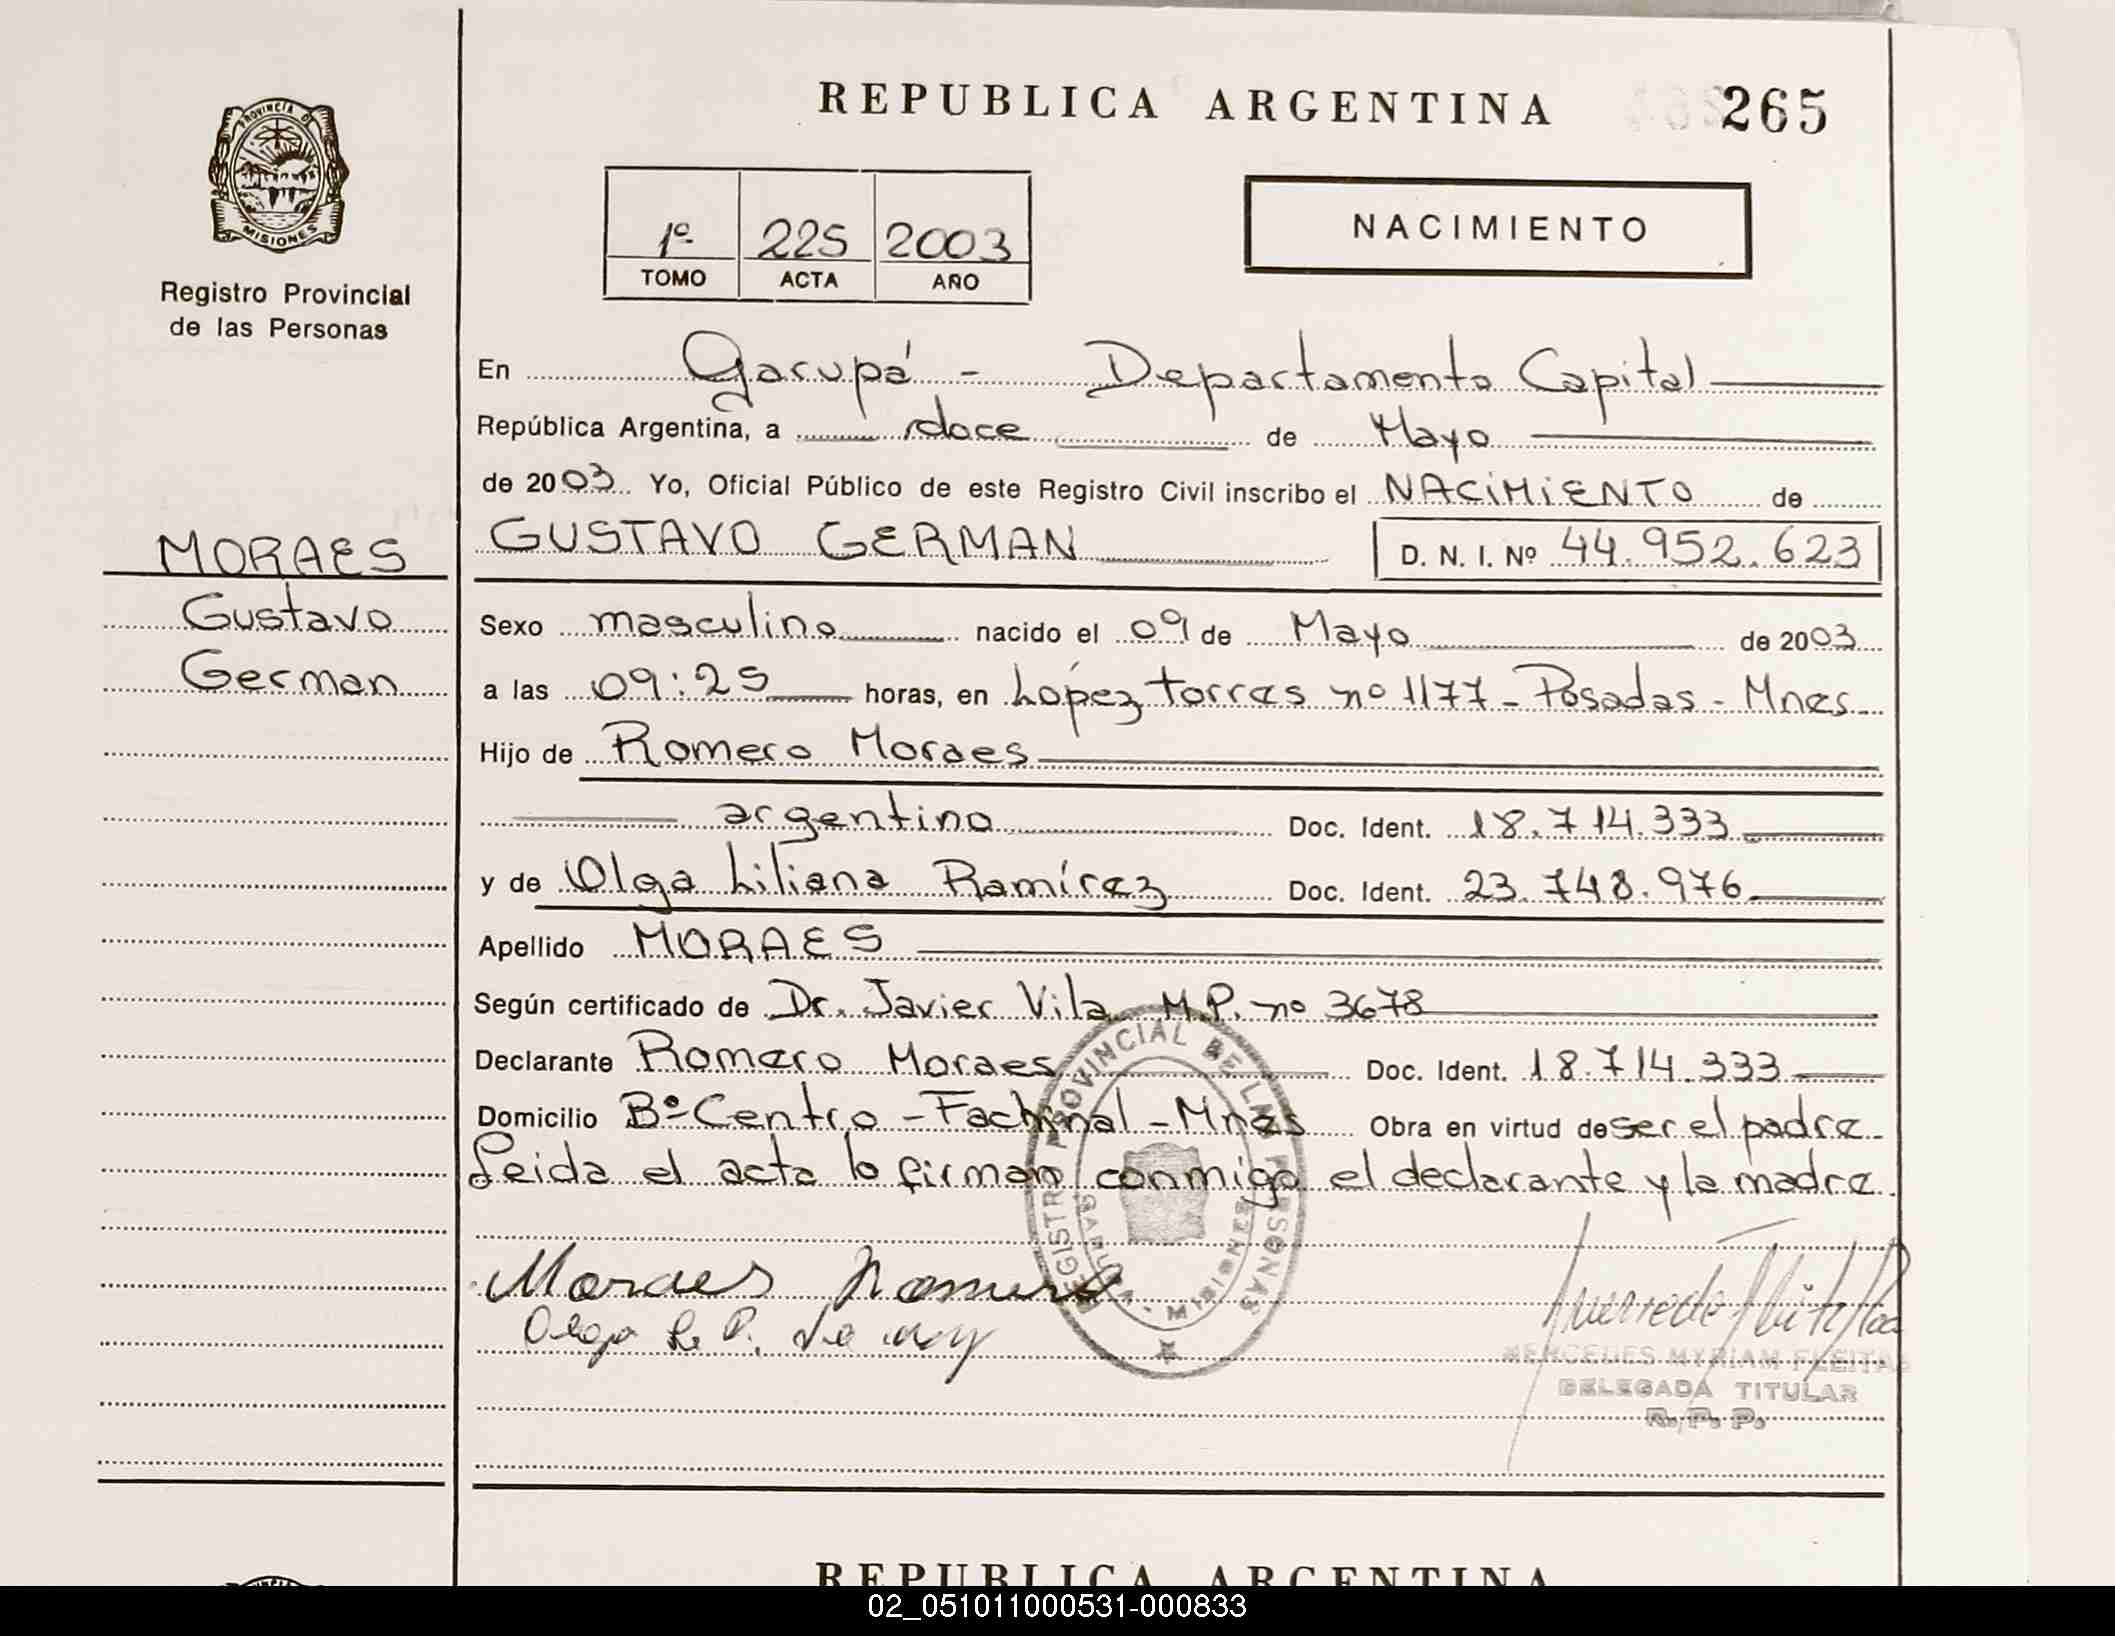 REPUBLICA ARGENTINA
265
PROVINCIA DE
MISIONES
Registro Provincial
de las Personas
1º 225 2003
TOMO ACTA AÑO
NACIMIENTO
En Garupá - Departamento Capital
República Argentina, a doce de Mayo
de 2003. Yo, Oficial Público de este Registro Civil inscribo el NACIMIENTO de
MORAES
Gustavo
German
GUSTAVO GERMAN D. N. I. Nº 44.952.623
Sexo masculino nacido el 09 de Mayo de 2003
a las 09:25 horas, en López torres nº 1177 - Posadas - Mnes
Hijo de Romero Moraes
argentino Doc. Ident. 18.714.333
y de Olga Liliana Ramírez Doc. Ident. 23.748.976
Apellido MORAES
Según certificado de Dr. Javier Vila M.P. nº 3678
Declarante Romero Moraes Doc. Ident. 18.714.333
Domicilio Bº Centro - Fachinal - Mnes Obra en virtud de ser el padre
Leida el acta lo firman conmigo el declarante y la madre.
REGISTRO PROVINCIAL DE LAS PERSONAS
GARUPA - MISIONES
Moraes Romero
MERCEDES MYRIAM FLEITAS
DELEGADA TITULAR
R. P. P.
REPUBLICA ARGENTINA
02_051011000531-000833